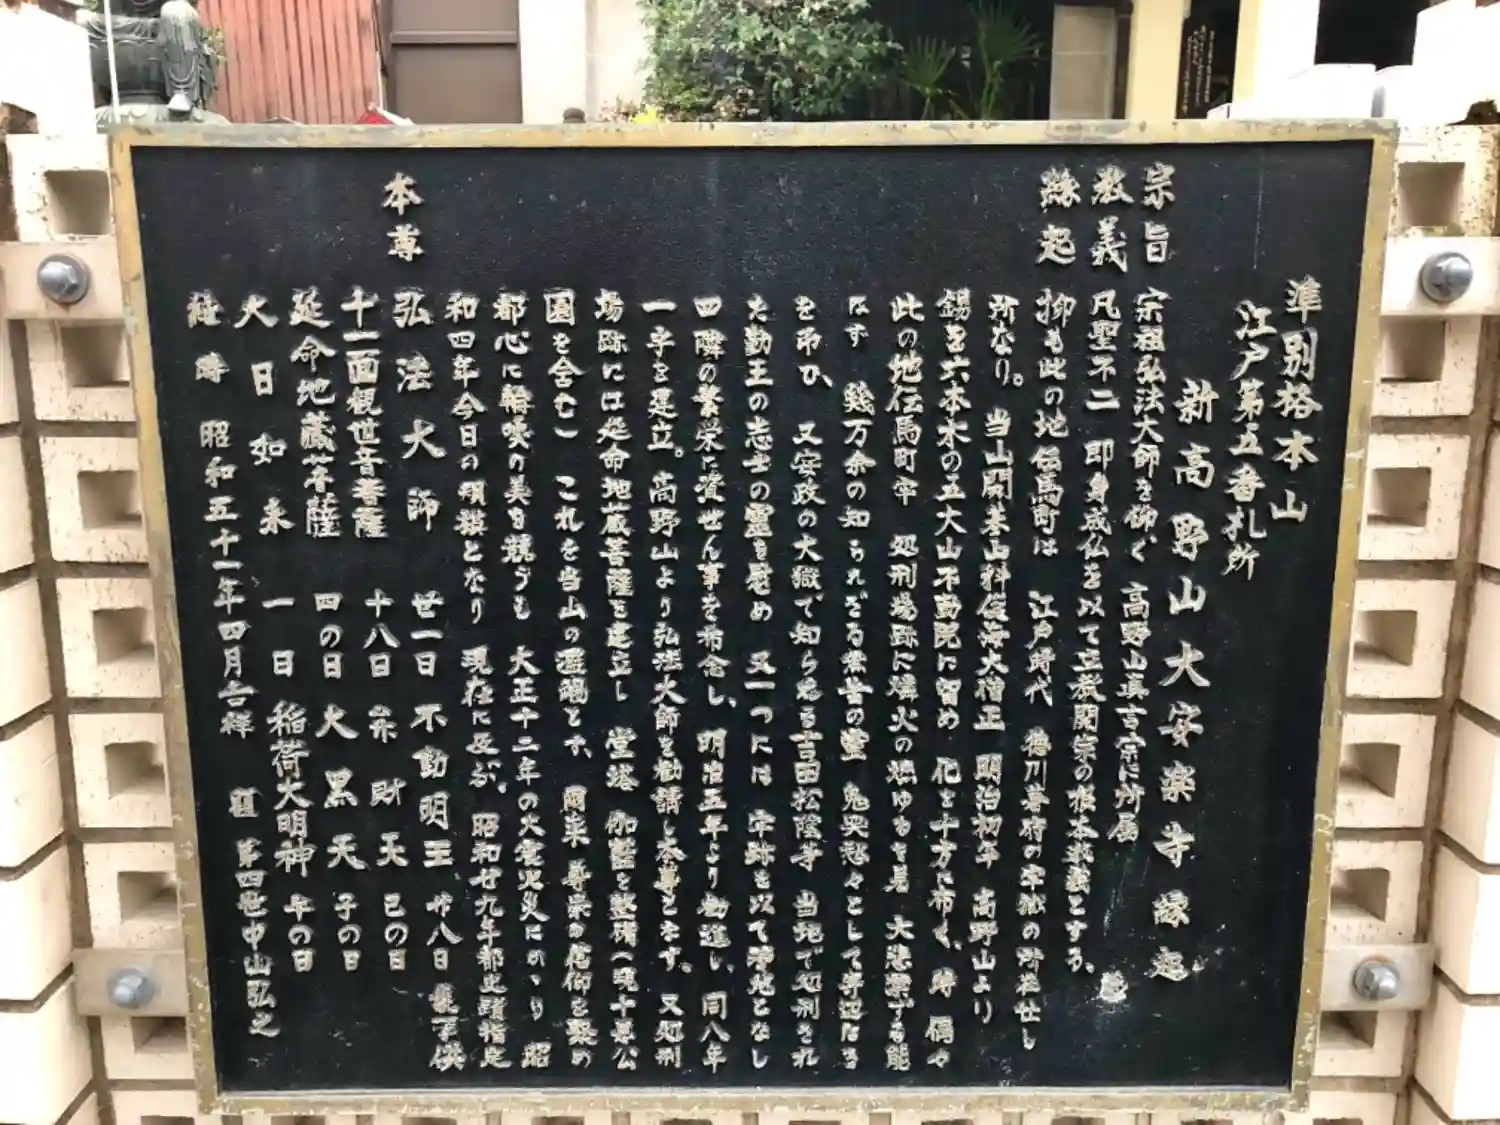 準別格本山
江戸第五番札所
新高野山大安楽寺縁起
宗旨 宗祖弘法大師を仰ぐ 高野山真言宗に所属
教義 凡聖不二 即身成仏を以て立教開宗の根本教義とする。
縁起 抑も此の地伝馬町は 江戸時代 徳川幕府の牢獄の所在せし
所なり。 当山開基山科俊海大僧正 明治初年 高野山より
錫を六本木の五大山不動院に留め 化を十方に布く、時 偶々
此の地伝馬町牢 処刑場跡に燐火の燃ゆるを見 大悲禁ずる能
はず 幾万余の知られざる 鬼哭愁々として
を弔ひ、 又安政の大獄で知らるる吉田松陰等 当地で処刑され
た勤王の志士の霊を慰め 又一つには 牢跡を以て浄地となし
四隣の繁栄に資せん事を希念し、明治五年より勧進し、同八年
一宇を建立。高野山より弘法大師を勧請し本尊となす。又処刑
場跡には延命地蔵菩薩を建立し 堂塔 伽藍を整備(現十思公
園を含む) これを当山の 爾来 尊崇の信仰を聚め
都心に輪喚の美を競うも 大正十二年の大震火災にあい 昭
和四年今日の規模となり 現在に及ぶ。昭和廿九年都史蹟指定
本尊 弘法大師 廿一日 不動明王 廿八日
十一面観世音菩薩 十八日 弁財天 己の日
延命地蔵菩薩 四の日 大黒天 子の日
大日如来 一日 稲荷大明神 午の日
維時 昭和五十一年四月吉祥 第四世中山弘之